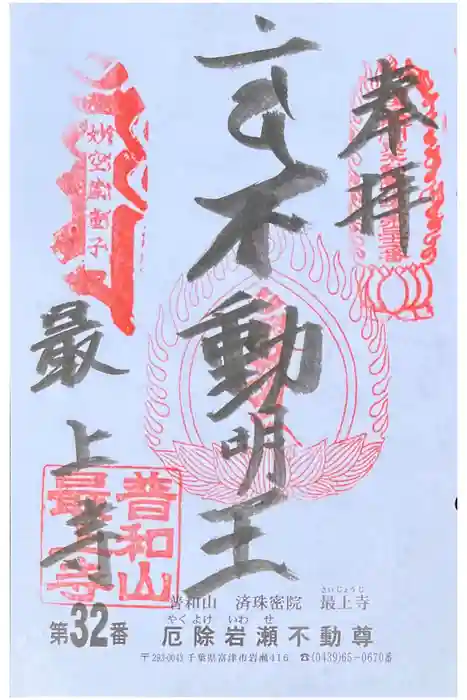 奉拝
不動明王
最上寺
妙空童子
普和山
最上寺
普和山 済珠密院 最上寺
さいじょうじ
第32番
厄除岩瀬不動尊
やくよけ いわせ
〒293-0043 千葉県富津市岩瀬416 ☎(0439)65-0670番